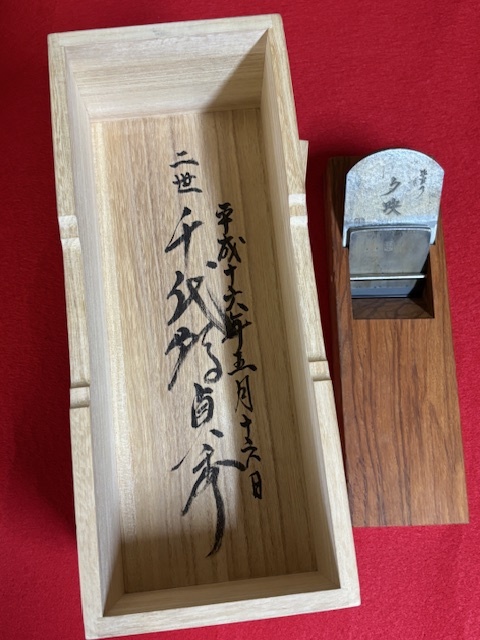 平成十六年五月十六日
二世 千代鶴貞秀
夕映